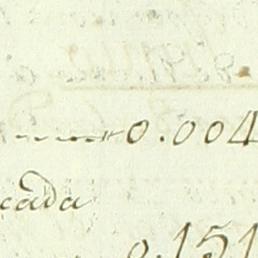 0.004
cada
0.151